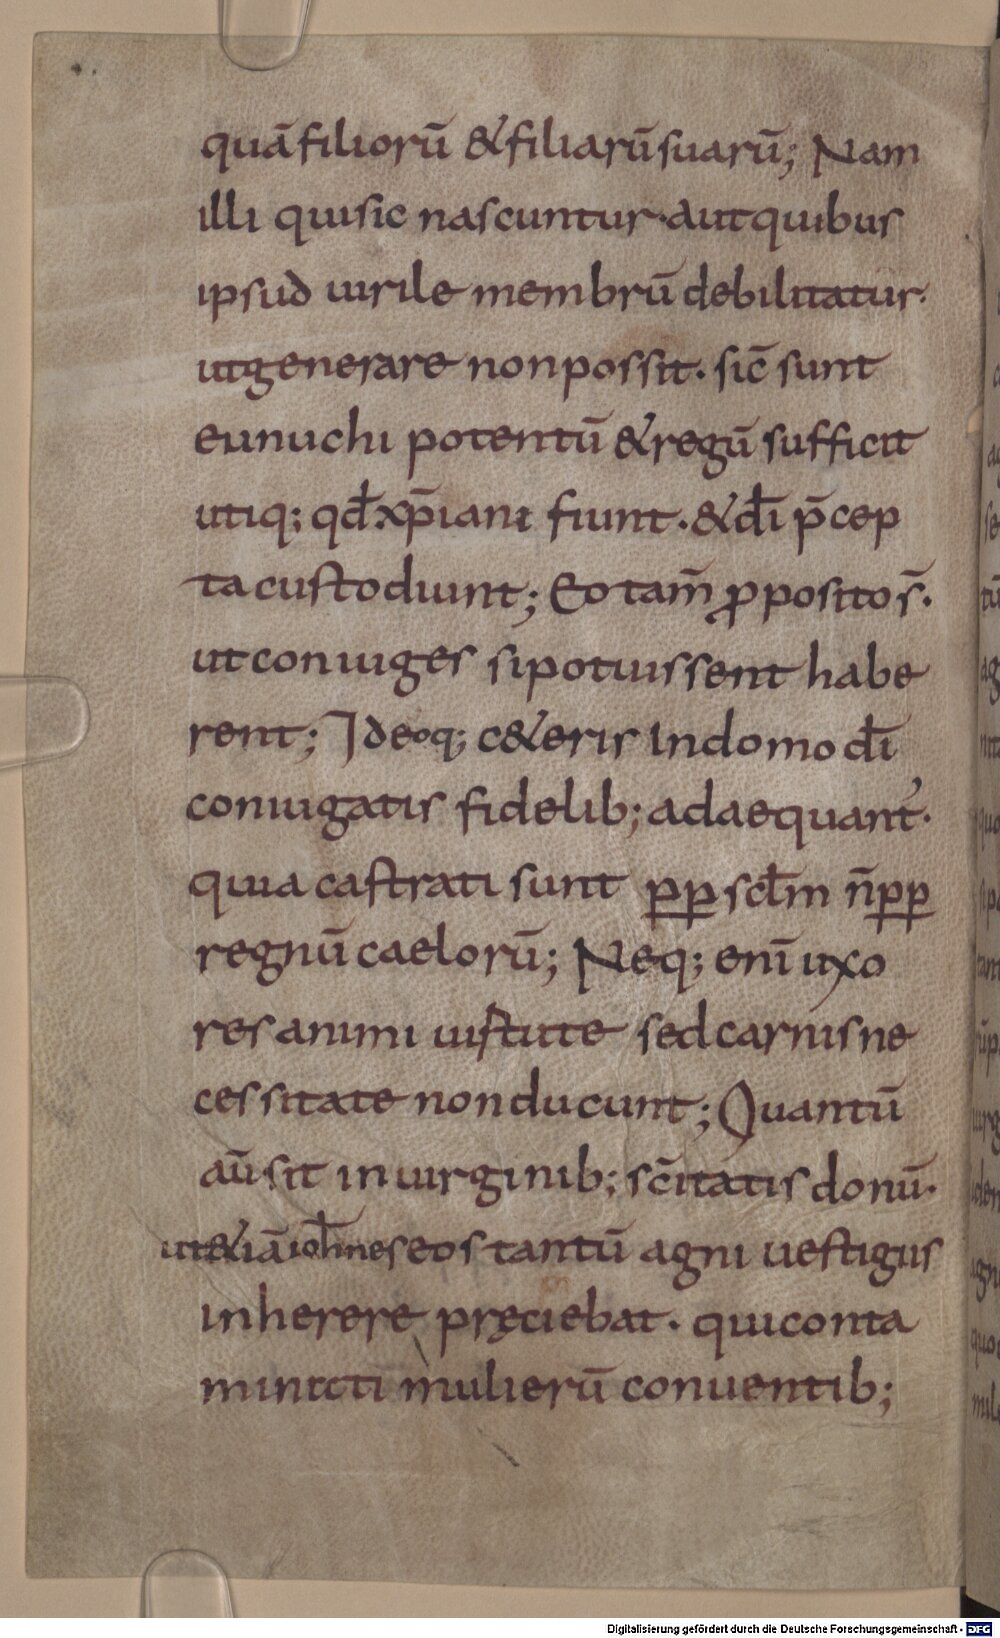 quā filiorū & filiarū suarū; Nam
illi qui sic nascuntur· aut quibus
ipsud uirile membrū debilitatur·
ut generare non possit· sic̄ sunt
eunuchi potentū & regū sufficit
utiq; qd̄ xp̄iani fiunt· & dī p̄cep
ta custodiunt; Eo tam̄ ꝓposito s̄·
ut coniuiges si potuissent habe
rent; Ideoq; c&eris in domo dī
coniugatis fidelib; adaequant̄·
quia castrati sunt ꝑꝑ scl̄m n̄ ꝑꝑ
regnū caelorū; Neq; enī uxo
res animi uistute sed carnis ne
cessitate non ducunt; Quantū
aū sit in uirginib; sc̄itatis donū·
ut &iā ioh̄nes eos tantū agni uestigiis
inherere pręciebat· qui conta
mincti mulierū conuentib;
Digitalisierung gefördert durch die Deutsche Forschungsgemeinschaft - DFG